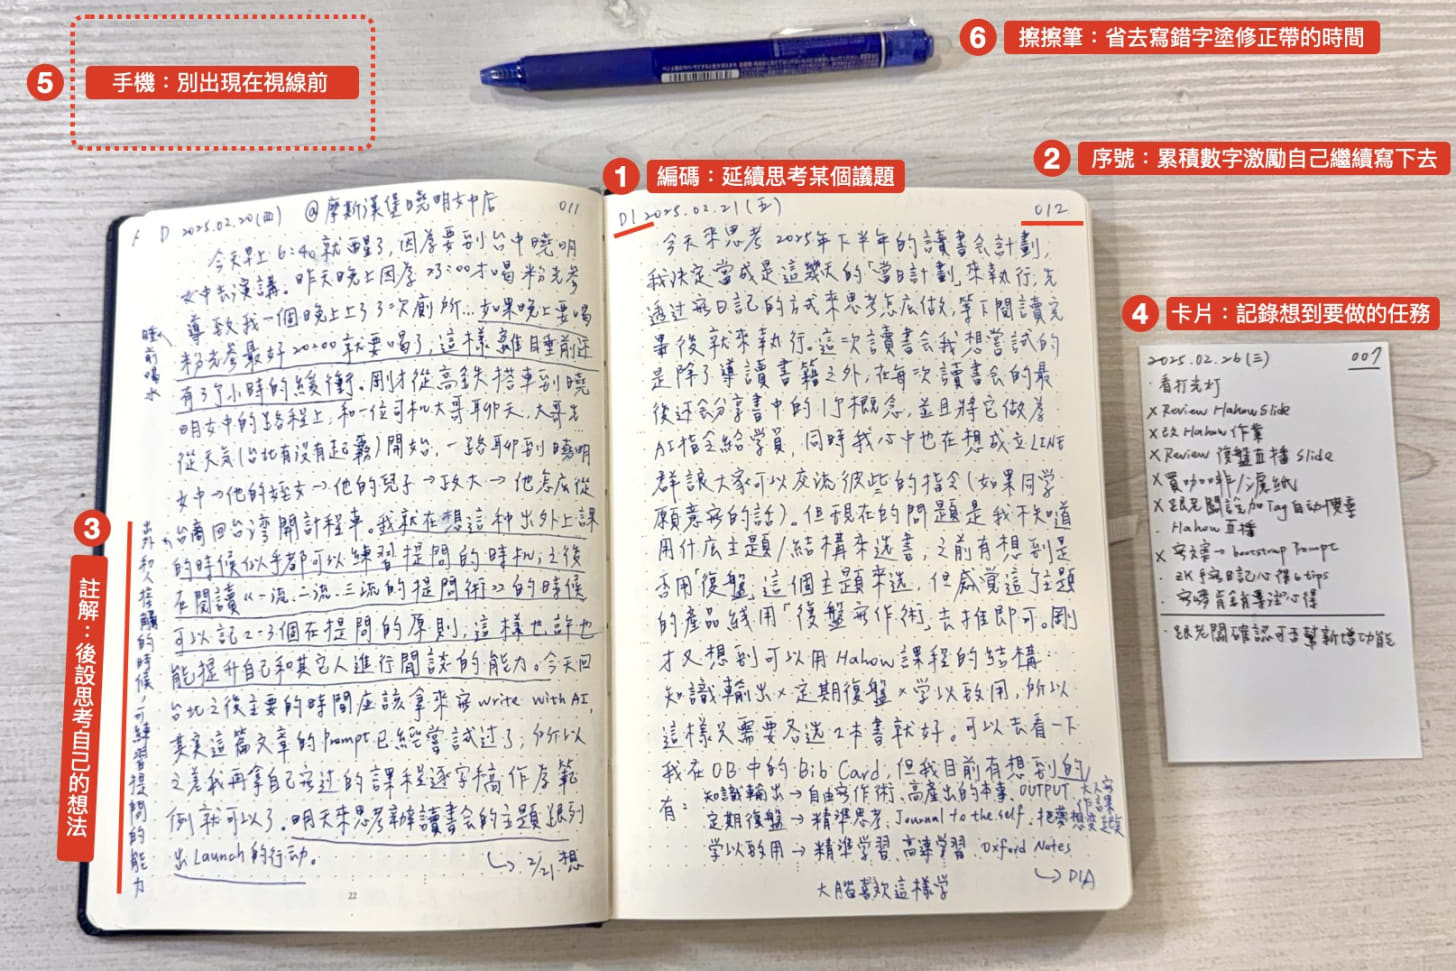 5 手機：別出現在視線前
6 擦擦筆：省去寫錯字塗修正帶的時間
1 編碼：延續思考某個議題
2 序號：累積數字激勵自己繼續寫下去
3 註解：後設思考自己的想法
4 卡片：記錄想到要做的任務
D 2025.02.20(四) @摩斯漢堡曉明女中店 011
今天早上6:40就醒了,因為要到台中曉明
女中去演講。昨天晚上因為23:00才喝粉光參
導致我一個晚上上了3次廁所…如果晚上要喝
粉光參最好20:00就要喝了,這樣離睡前還
有3個小時的緩衝。剛才從高鐵搭車到曉
明女中的路程上,和一位司机大哥聊天,大哥先
從天氣(台北有沒有起霧)開始,一路聊到曉明
女中→他的姪女→他的兒子→政大→他怎麼從
台商回台灣開計程車。我就在想這种出外上課
的時候似乎都可以練習提問的時机,之後
在閱讀《一流、二流、三流的提問術》的時候
可以記2-3個在提問的原則,這樣也許也
能提升自己和其它人進行閒談的能力。今天回
台北之後主要的時間應該拿來寫write with AI,
其实這篇文章的Prompt已經嘗試過了,所以
之差我再拿自己寫过的課程逐字稿作為範
例就可以了。明天來思考辦讀書会的主題跟列
出Launch的行动。
↳ 2/21 想
睡前喝水
出外和人接觸的時候,可練習提問的能力
22
D1 2025.02.21(五) 012
今天來思考2025年下半年的讀書会計劃,
我決定當成是這幾天的「當日計劃」來執行,先
透过寫日記的方式來思考怎麼做,等下閱讀完
畢後就來執行。這一次讀書会我想嘗試的
是除了導讀書籍之外,在每次讀書会的最
後还会分享書中的1个概念,並且將它做為
AI指令給學員,同時我心中也在想成立LINE
群讓大家可以交流彼此的指令(如果同学
願意寫的話)。但現在的問題是我不知道
用什麼主題/結構來选書,之前有想到是
否用「復盤」這個主題來选,但感覺這个主題
的產品线用「復盤寫作術」去推即可。剛
才又想到可以用Hahow課程的結構:
知識輸出×定期復盤×学以致用,所以
這樣只需要各选2本書就好。可以去看一下
我在OB中的Bib Card,但我目前有想到的
有: 知識輸出→自由寫作術、高產出的本事、OUTPUT、大人寫作課
定期復盤→精準思考、Journal to the self、把夢想變起點
学以致用→精準学習、高速學習、Oxford Notes
大腦喜欢這樣学
↳ D1A
2025.02.26(三) 007
·看打克打
×Review Hahow Slide
×改Hahow作業
×Review復盤直播Slide
×買咖啡/濾紙
×跟老闆說加Tag自动標
·Hahow直播
×寫文案→bootstrap Prompt
·ZK手寫日記心得6tips
·
·跟老闆確認可否幫新增功能